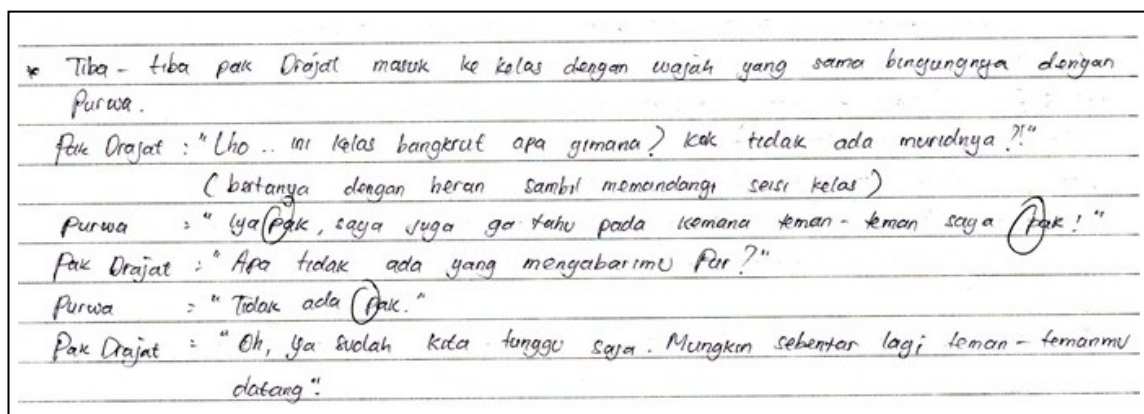 * Tiba - tiba pak Drajat masuk ke kelas dengan wajah yang sama bingungnya dengan
Purwa.
Pak Drajat : "Lho .. ini kelas bangkrut apa gimana? Kok tidak ada muridnya?!"
(bertanya dengan heran sambil memandangi seisi kelas)
Purwa : "Iya pak, saya juga ga tahu pada kemana teman - teman saya pak!"
Pak Drajat : "Apa tidak ada yang mengabarimu Pur?"
Purwa : "Tidak ada pak."
Pak Drajat : "Oh, ya sudah kita tunggu saja. Mungkin sebentar lagi teman - temanmu
datang".